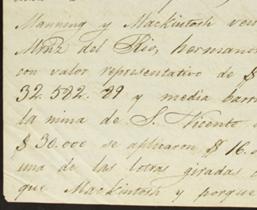 Manning y Mackintosh ven
Mrnz del Rio, hermanos
con valor representativo de $
32.522.29 y media barra
la mina de S. Vicente
$30.000 se aplicaron $16.0
una de las letras giradas
que Mackintosh y porque